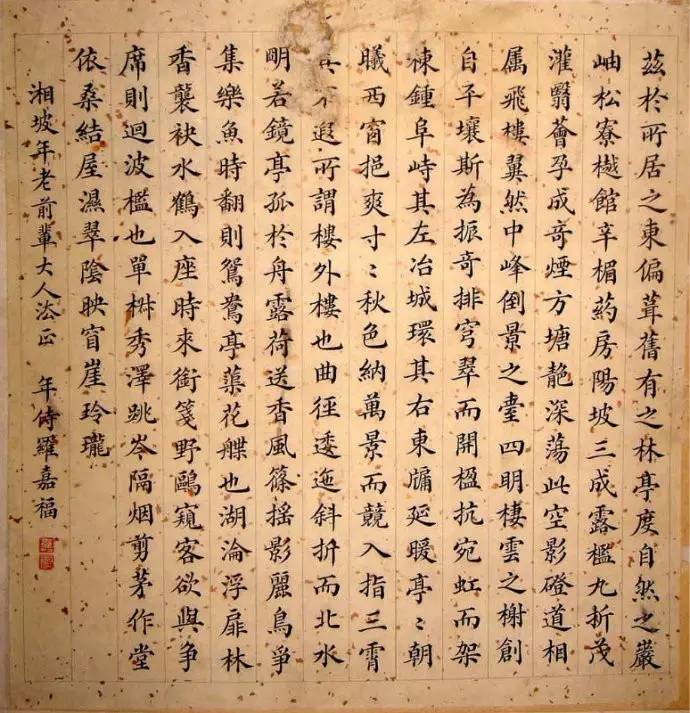 茲於所居之東偏葺舊有之林亭度自然之巖
岫松寮樾館辛楣葯房陽坡三成露檻九折茂
灌翳薈孕成奇煙方塘靘深蕩此空影磴道相
属飛樓翼然中峰倒景之臺四明棲雲之榭創
自平壤斯為振奇排穹翠而開楹抗宛虹而架
棟鍾阜峙其左冶城環其右東牖延暖亭〻朝
曦西窗挹爽寸〻秋色納萬景而競入指三霄
其不遐所謂樓外樓也曲徑逶迤斜折而北水
眀若鏡亭孤於舟露荷送香風篠搖影麗鳥爭
集樂魚時翻則鴛鴦亭蕖花艓也湖淪浮扉林
香襲袂水鶴入座時來銜箋野鷗窺客欲與爭
席則迴波檻也單椒秀澤跳岑隔烟剪茅作堂
依桑結屋濕翠陰映窅崖玲瓏
湘坡年老前輩大人法正 年侍羅嘉福